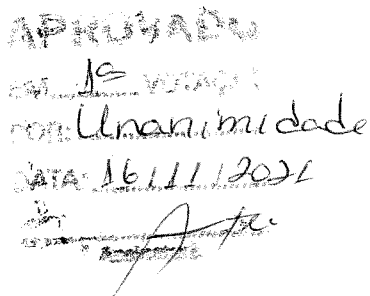 APROVADO
EM 1ª VOTAÇÃO
POR: Unanimidade
DATA: 16/11/2021